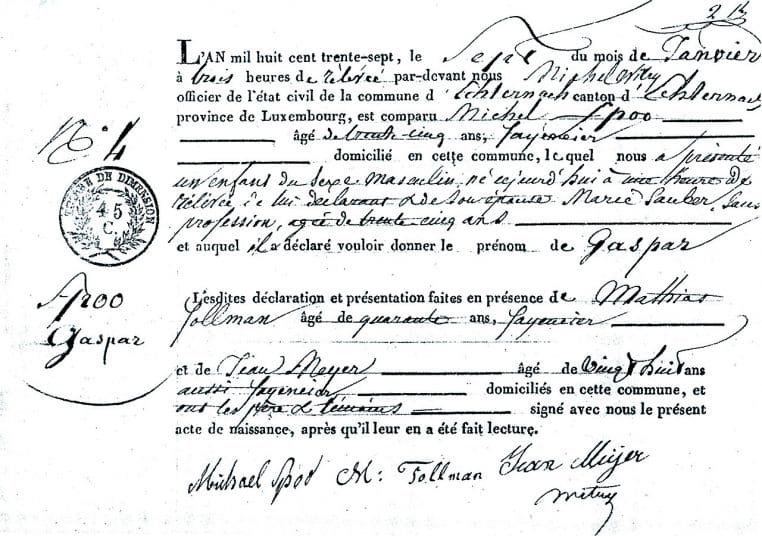 2
L'AN mil huit cent trente-sept, le Sept du mois de Janvier
à trois heures de rélévée par-devant nous Michel
officier de l'état civil de la commune d'Echternach canton d'Echternach
province de Luxembourg, est comparu Michel Spoo
N° 4
âgé de trente-cinq ans, fayencier
domicilié en cette commune, lequel nous a présenté
un enfant du sexe Masculin né cejourd'hui à une heure de
TIMBRE DE DIMENSION
45
C.
rélévée, de lui déclarant & de son épouse Marie Sauber, sans
profession, agée de trente-cinq ans
et auquel il a déclaré vouloir donner le prénom de Gaspar
Spoo
Gaspar
Lesdites déclaration et présentation faites en présence de Mathias
Follman âgé de quarante ans, fayencier
et de Jean Meyer âgé de vingt huit ans
aussi fayencier domiciliés en cette commune, et
ont les père & témoins signé avec nous le présent
acte de naissance, après qu'il leur en a été fait lecture.
Michael Spoo M: Follman Jean Meÿer